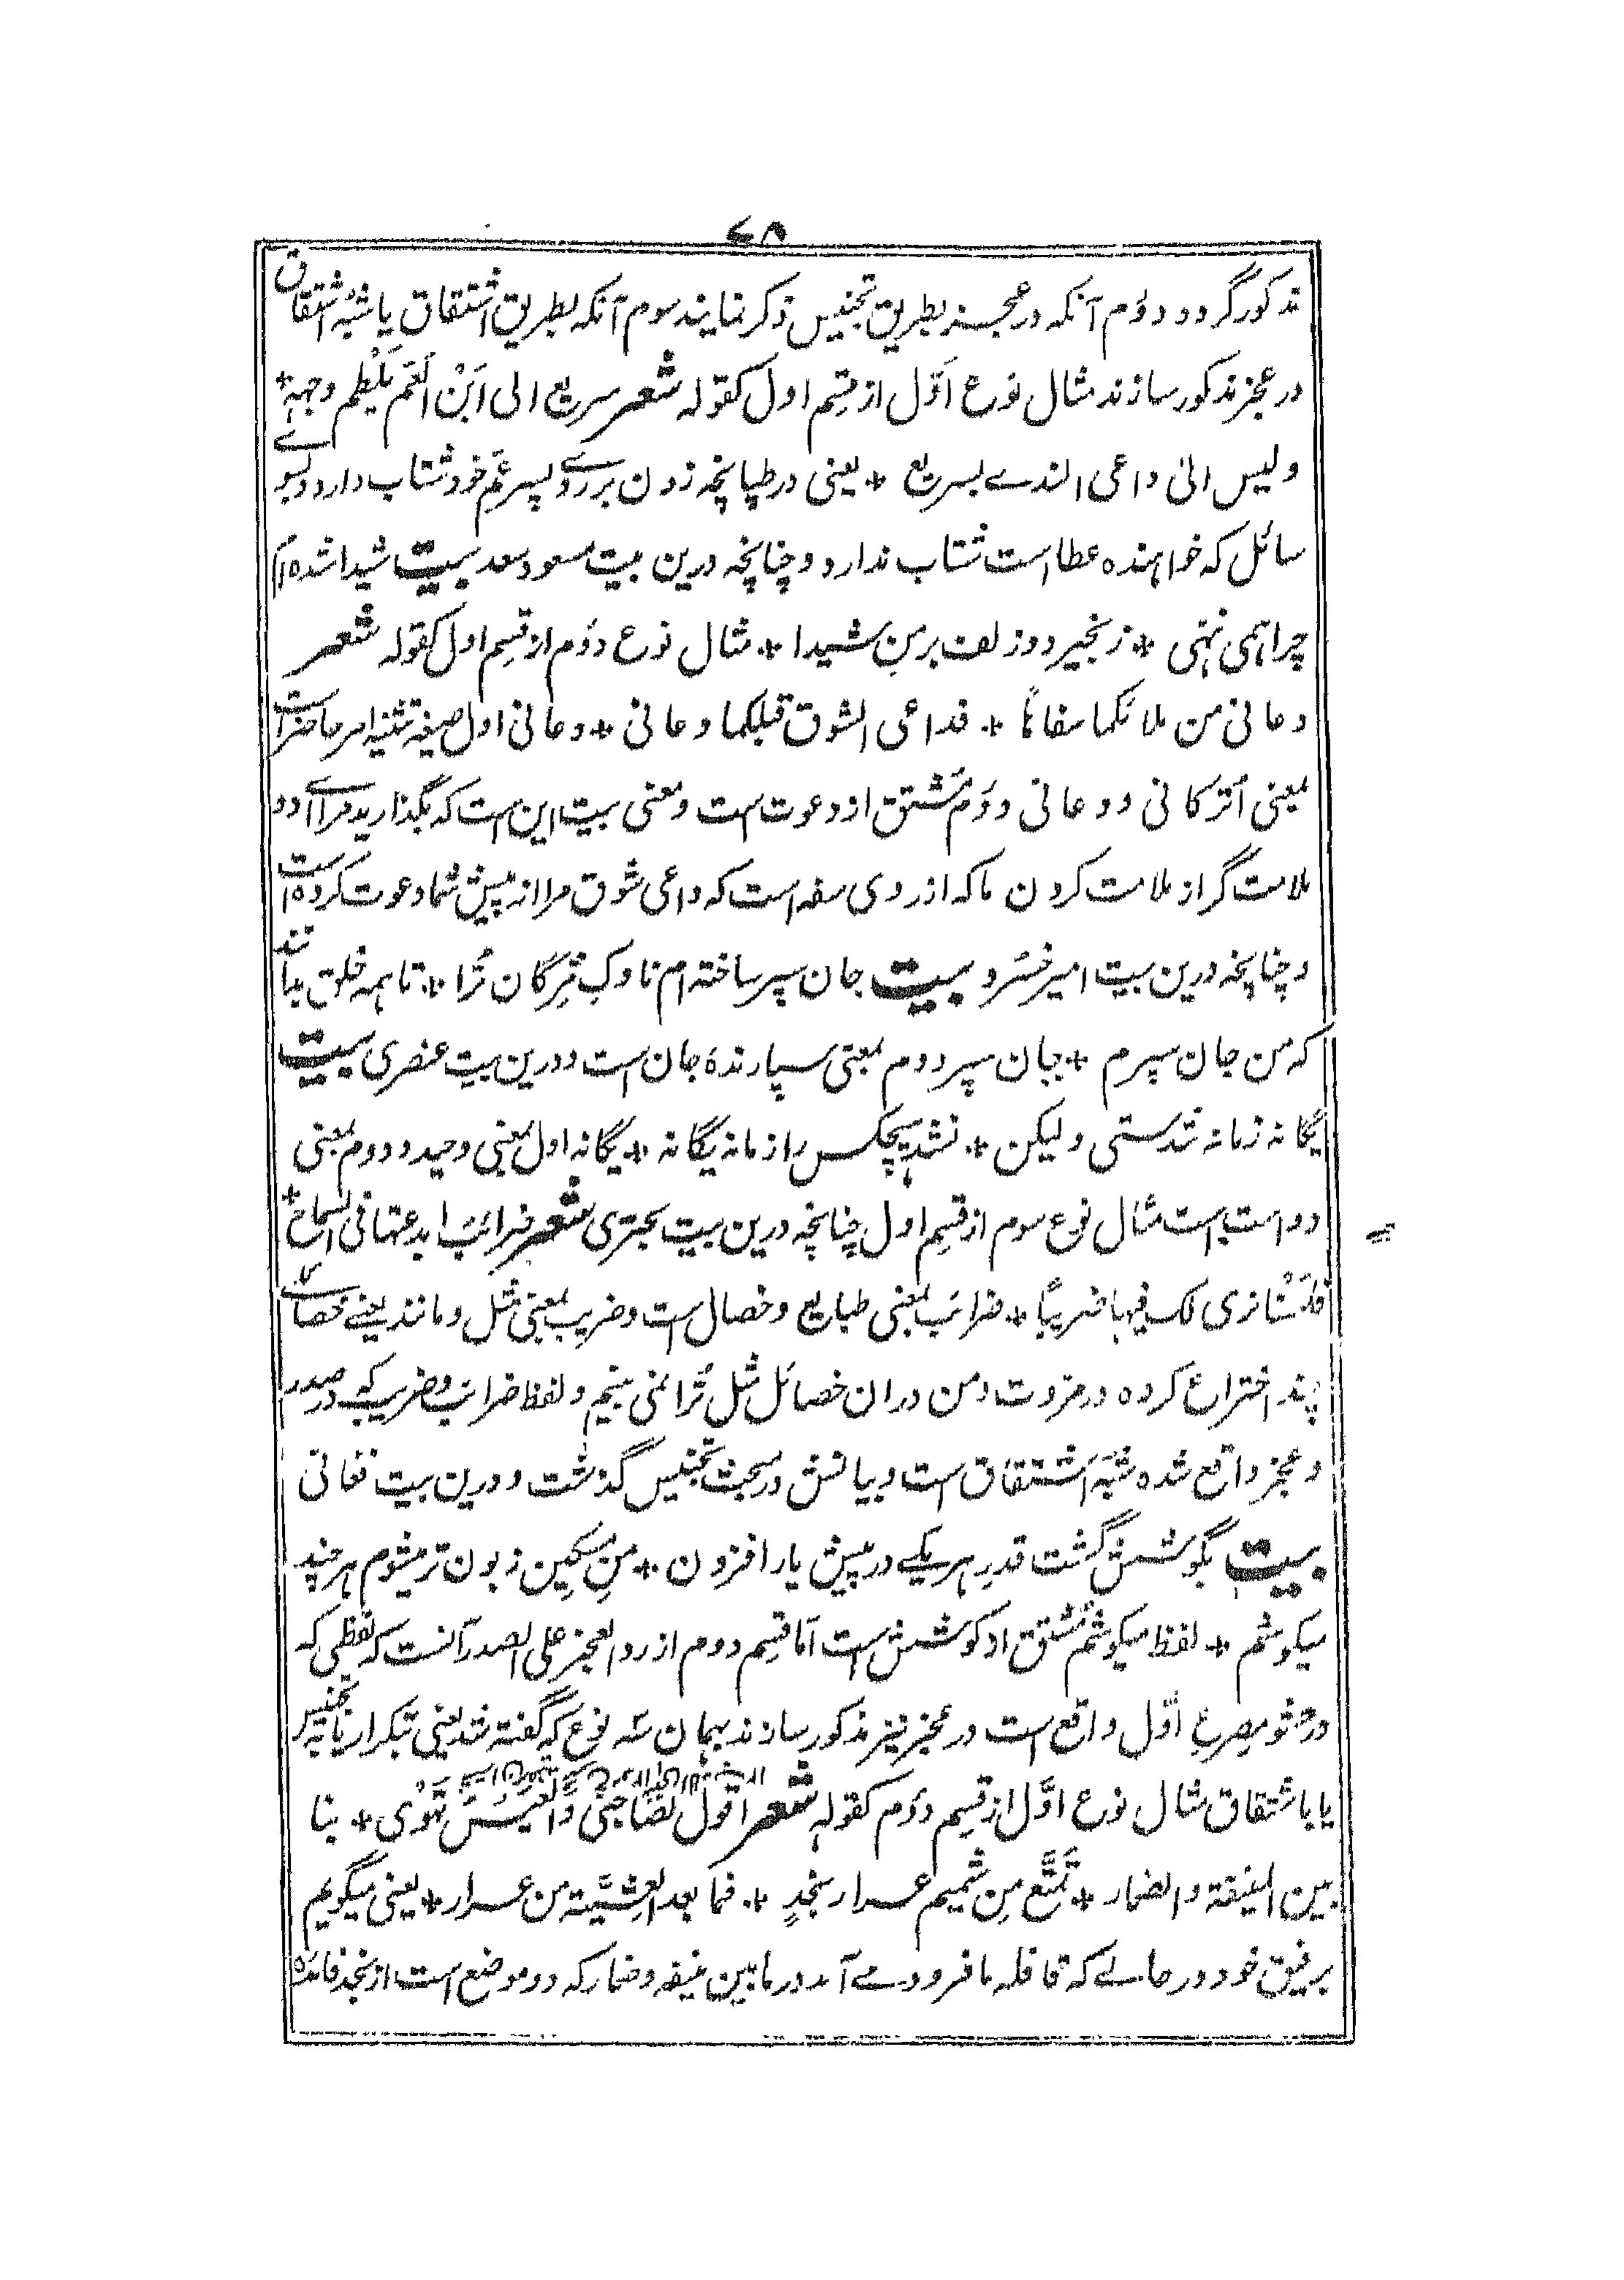 ۷۸
مذکور گردد دوم آنکه در عجز بطریق تجنیس ذکر نمایند سوم آنکه بطریق اشتقاق یا شبه اشتقاق
در عجز مذکور سازند مثال نوع اوّل از قسم اول کقوله شعر سریع الی ابْن العَمّ یَلْطم وجهه *
ولیس الی داعی الندے بسریع * یعنی در طپانچه زدن بر روے پسر عم خود شتاب دارد و بسوے
سائل که خواهنده عطا است شتاب ندارد و چنانچه درین بیت مسعود سعد بیت شیدا شده ام
چرا همی ننهی * زنجیر دو زلف بر من شیدا * مثال نوع دوم از قسم اول کقوله شعر
دعانی من ملامکما سفاهًا * فداعی الشوق قبلکما دعانی * دعانی اول صیغه تثنیه امر حاضر است
بمعنی اترکانی و دعانی دوم مشتق از دعوت است و معنی بیت این است که بگذارید مرا اے دو
ملامت گر از ملامت کردن ما که از روی سفه است که داعی شوق مرا از پیش شما دعوت کرده است
و چنانچه درین بیت امیر خسرو بیت جان سپر ساخته ام ناوک مژگان ترا * تا همه خلق بدانند
که من جان سپرم * جان سپر دوم بمعنی سپارنده جان است و درین بیت عنصری بیت
یگانه زمانه شدستی ولیکن * نشد هیچکس را زمانه یگانه * یگانه اول بمعنی وحید و دوم بمعنی
دوست است مثال نوع سوم از قسم اول چنانچه درین بیت بحتری شعر ضرائب ابدعتها فی السماح *
فلسنا نری لک فیها ضریبًا * ضرائب بمعنی طبایع و خصال است و ضریب بمعنی مثل و مانند یعنے خصائلے
چند اختراع کرده در مروت و من دران خصائل مثل ترا نمی بینم و لفظ ضرائب و ضریب که در صدر
و عجز واقع شده شبه اشتقاق است و بیانش در مبحث تجنیس گذشت و درین بیت فغانی
بیت بگوشش گشت قدر هر یکے در پیش یار افزون * من مسکین زبون تر میشوم هر چند
میکوشم * لفظ میکوشم مشتق از کوشش است اما قسم دوم از رد العجز علی الصدر آنست که لفظی که
در حشو مصرع اوّل واقع است در عجز نیز مذکور سازند بهمان سه نوع که گفته شد یعنی بتکرار یا به تجنیس
یا باشتقاق مثال نوع اوّل از قسم دوم کقوله شعر اقول لصاحبی والعیس تهوی * بنا
بین المنیفة والضمار * تمتّع من شمیم عرار نجدٍ * فما بعد العشیّة من عرار * یعنی میگویم
برفیق خود در حالے که قافله ما فرود مے آمد در مابین منیفه و ضمار که دو موضع است از نجد